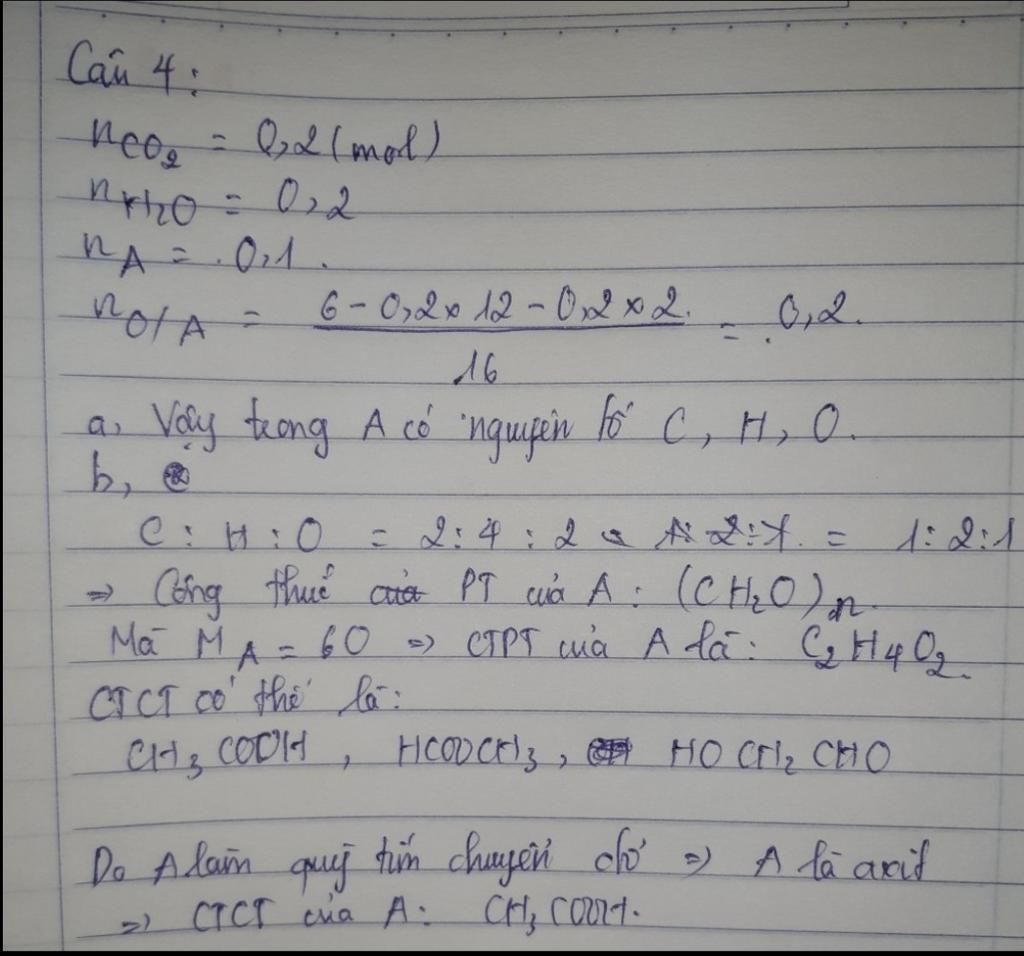 Câu 4:
nCO2 = 0,2 (mol)
nH2O = 0,2
nA = 0,1.
nO/A = (6 - 0,2 x 12 - 0,2 x 2) / 16 = 0,2.
a, Vậy trong A có nguyên tố C, H, O.
b,
C : H : O = 2 : 4 : 2 = 1 : 2 : 1
=> Công thức PT của A : (CH2O)n.
Mà MA = 60 => CTPT của A là : C2H4O2.
CTCT có thể là :
CH3COOH , HCOOCH3 , HOCH2CHO
Do A làm quỳ tím chuyển đỏ => A là axit
=> CTCT của A : CH3COOH.